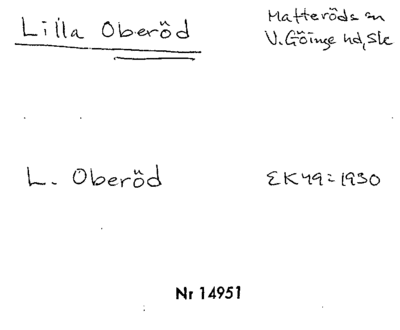 Lilla Oberöd
Matteröds sn
V. Göinge hd, Sk
L. Oberöd
EK 49 = 1930
Nr 14951